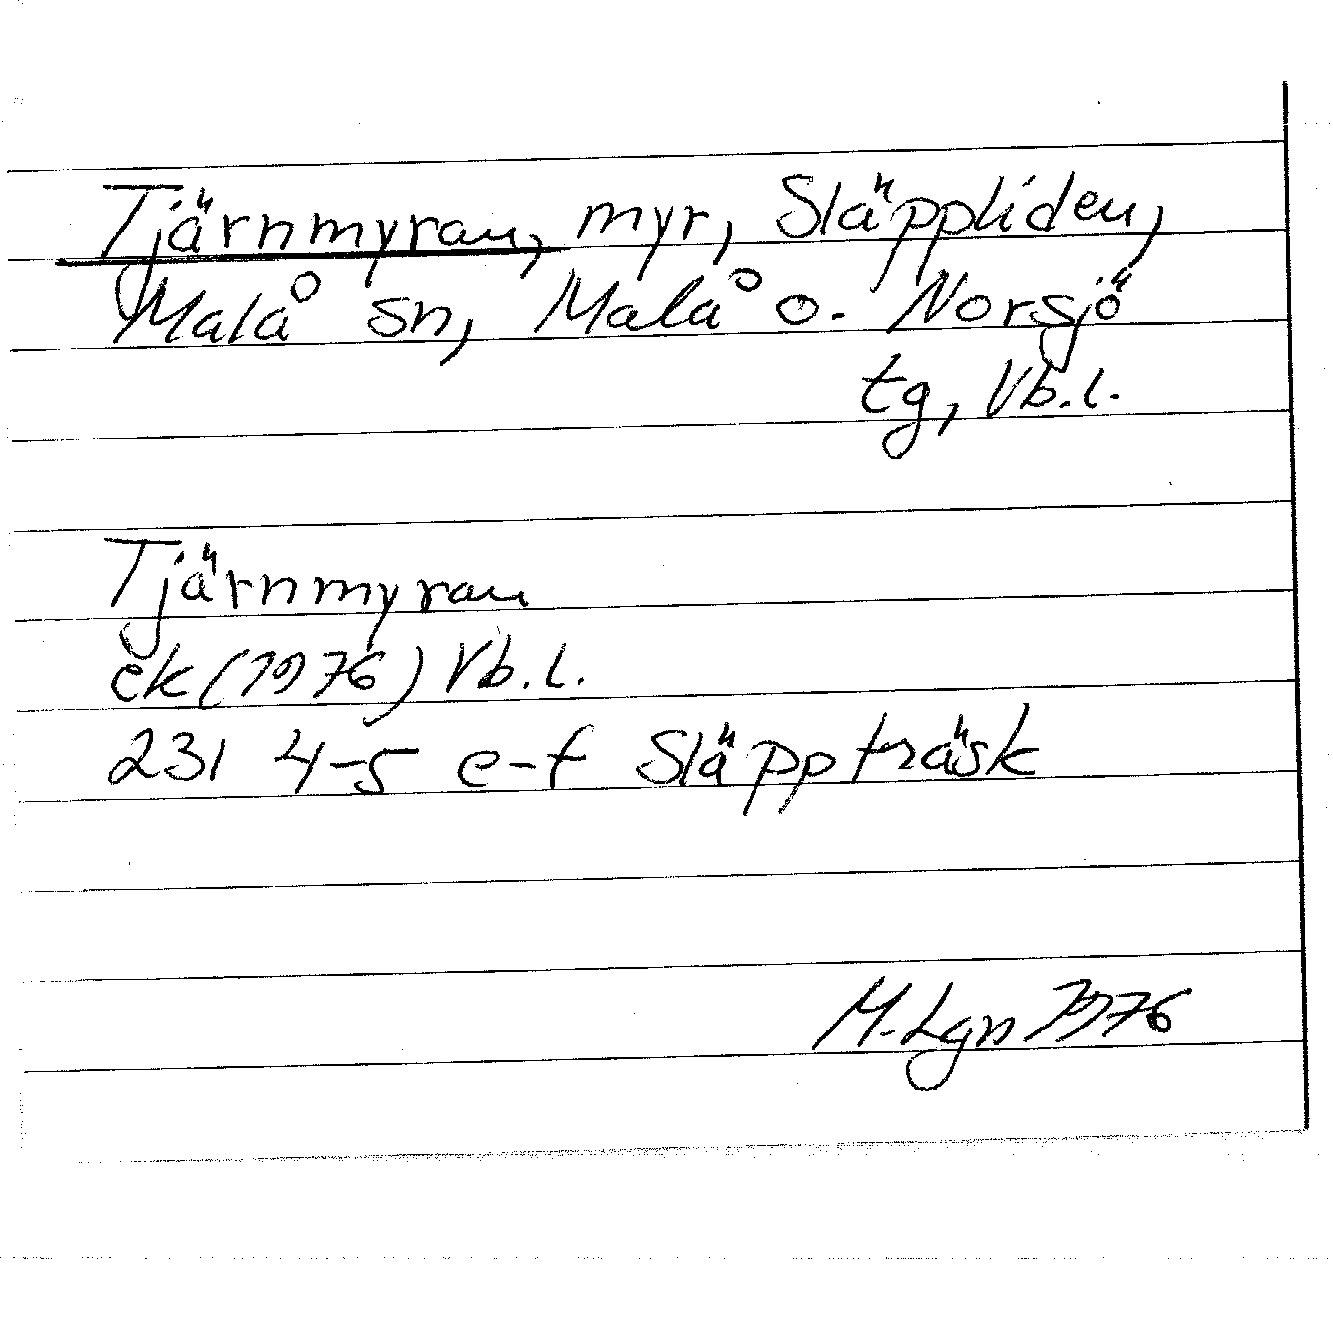 Tjärnmyran, myr, Släppliden,
Malå sn, Malå o. Norsjö
tg, Vb.l.
Tjärnmyran
ek (1976) Vb.l.
231 4-5 e-f Släppträsk
M. Lgn 1976